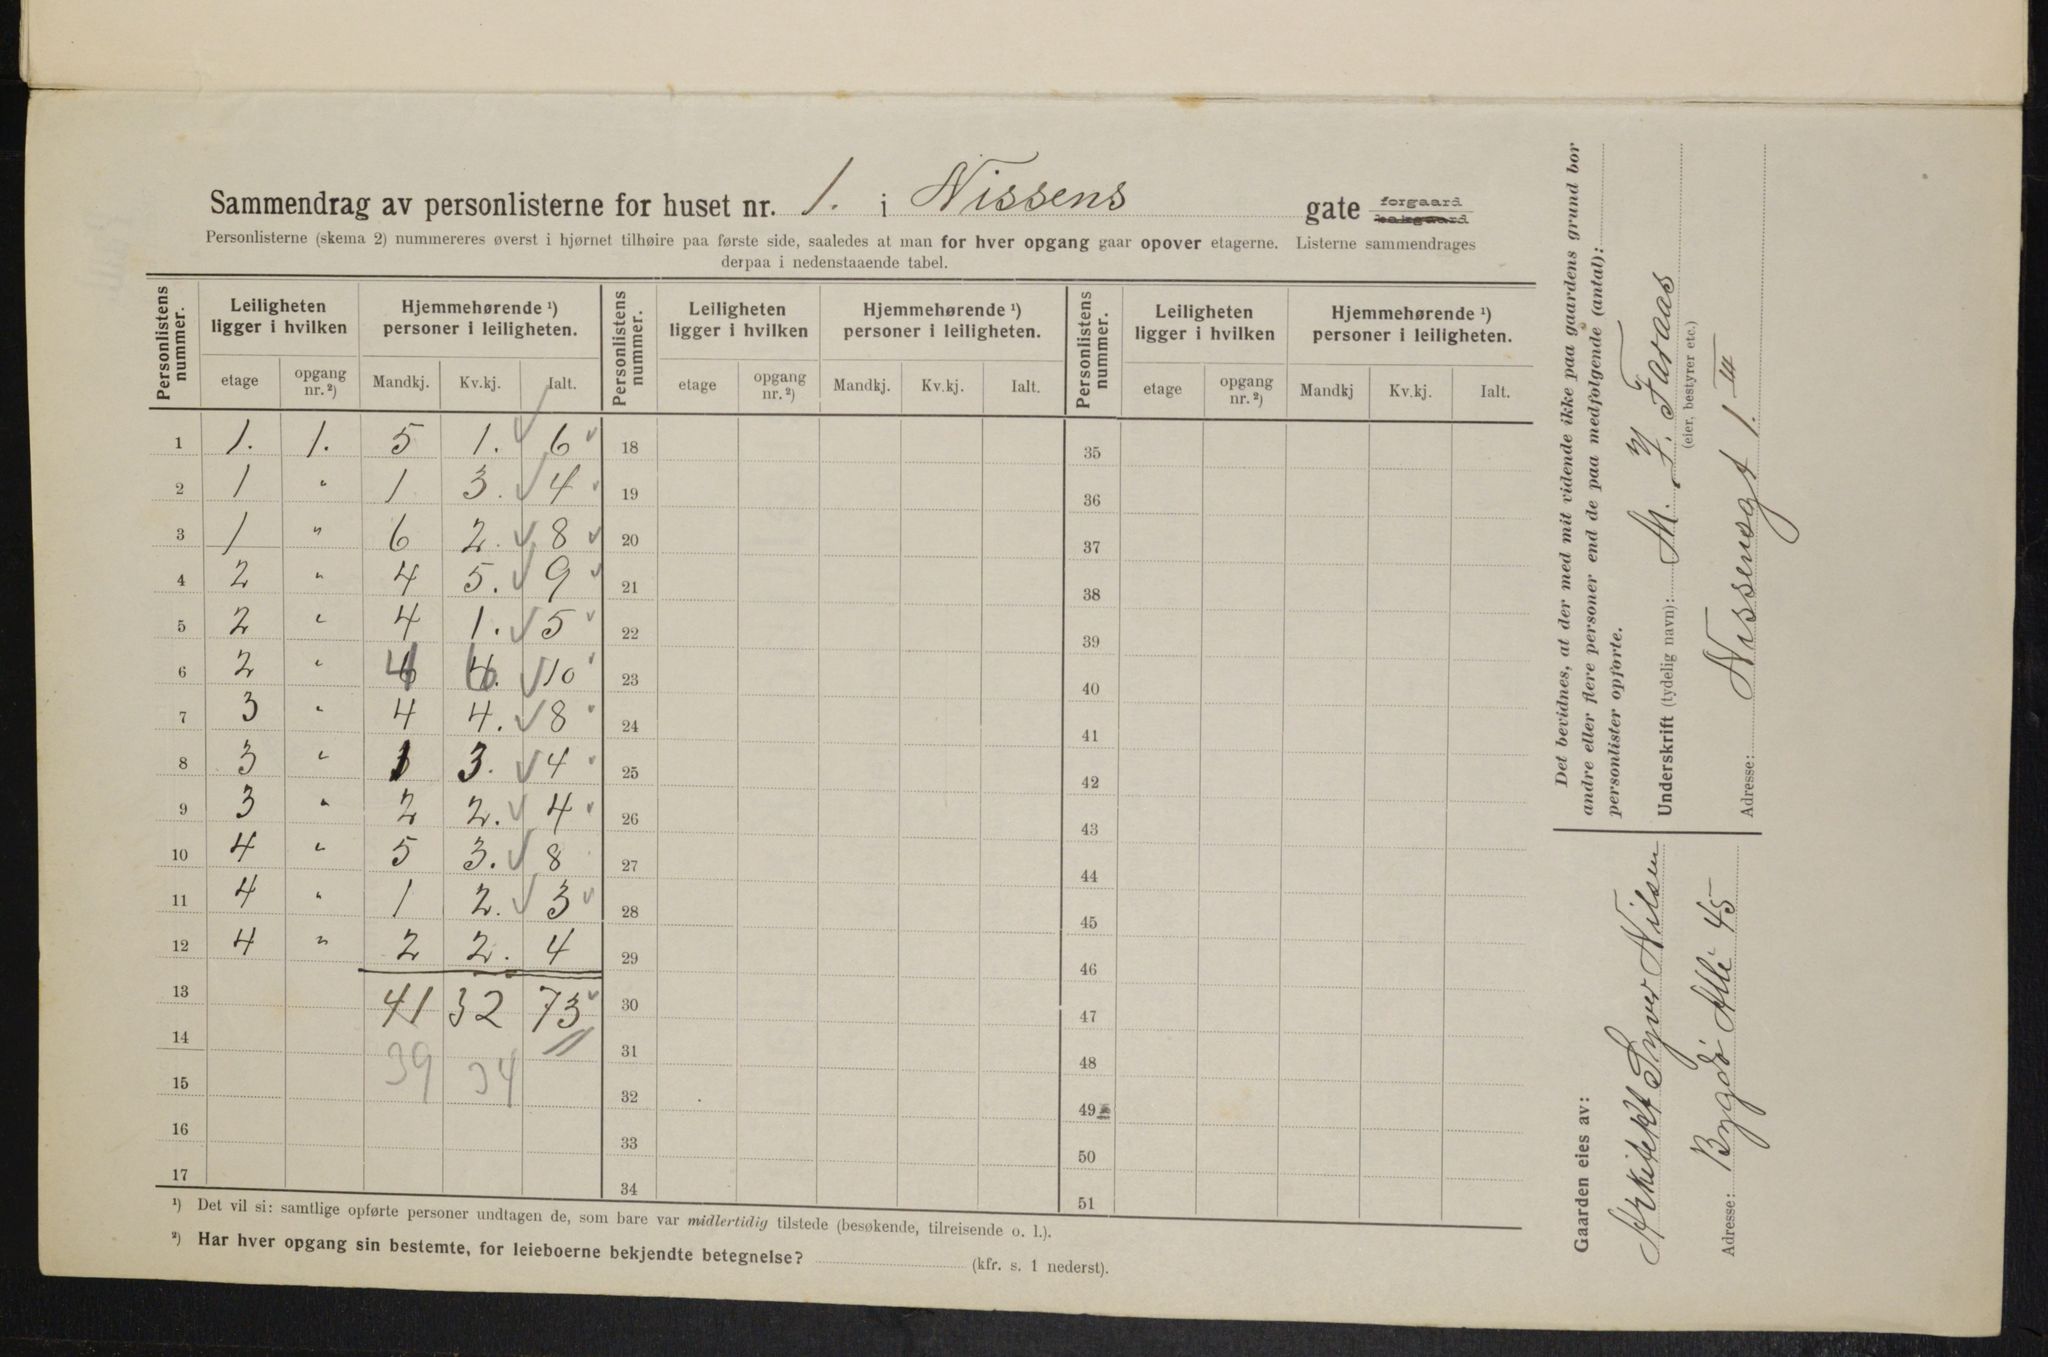 Sammendrag av personlisterne for huset nr. 1. i Nissens gate forgaard
bakgaard
Personlisterne (skema 2) nummereres øverst i hjørnet tilhøire paa første side, saaledes at man for hver opgang gaar opover etagerne. Listerne sammendrages
derpaa i nedenstaaende tabel.
Personlistens nummer. Leiligheten ligger i hvilken Hjemmehørende ¹) personer i leiligheten. Personlistens nummer. Leiligheten ligger i hvilken Hjemmehørende ¹) personer i leiligheten. Personlistens nummer. Leiligheten ligger i hvilken Hjemmehørende ¹) personer i leiligheten.
etage opgang nr. ²) Mandkj. Kv.kj. Ialt. etage opgang nr. ²) Mandkj. Kv.kj. Ialt. etage opgang nr. ²) Mandkj Kv.kj. Ialt.
1 1. 1. 5 1. 6 18 35
2 1 " 1 3. 4 19 36
3 1 " 6 2. 8 20 37
4 2 " 4 5. 9 21 38
5 2 " 4 1. 5 22 39
6 2 " 4 6 10 23 40
7 3 " 4 4. 8 24 41
8 3 " 1 3. 4 25 42
9 3 " 2 2. 4 26 43
10 4 " 5 3. 8 27 44
11 4 " 1 2. 3 28 45
12 4 " 2 2. 4 29 46
13 41 32 73 30 47
14 31 48
15 39 34 32 49
16 33 50
17 34 51
¹) Det vil si: samtlige opførte personer undtagen de, som bare var midlertidig tilstede (besøkende, tilreisende o. l.).
²) Har hver opgang sin bestemte, for leieboerne bekjendte betegnelse? (kfr. s. 1 nederst).
Det bevidnes, at der med mit vidende ikke paa gaardens grund bor
andre eller flere personer end de paa medfølgende (antal):
personlister opførte.
Underskrift (tydelig navn): Faraas
(eier, bestyrer etc.)
Adresse: Nissensgt 1. III
Gaarden eies av:
Arkitekt Syver Nilsen
Adresse: Bygdö Alle 45